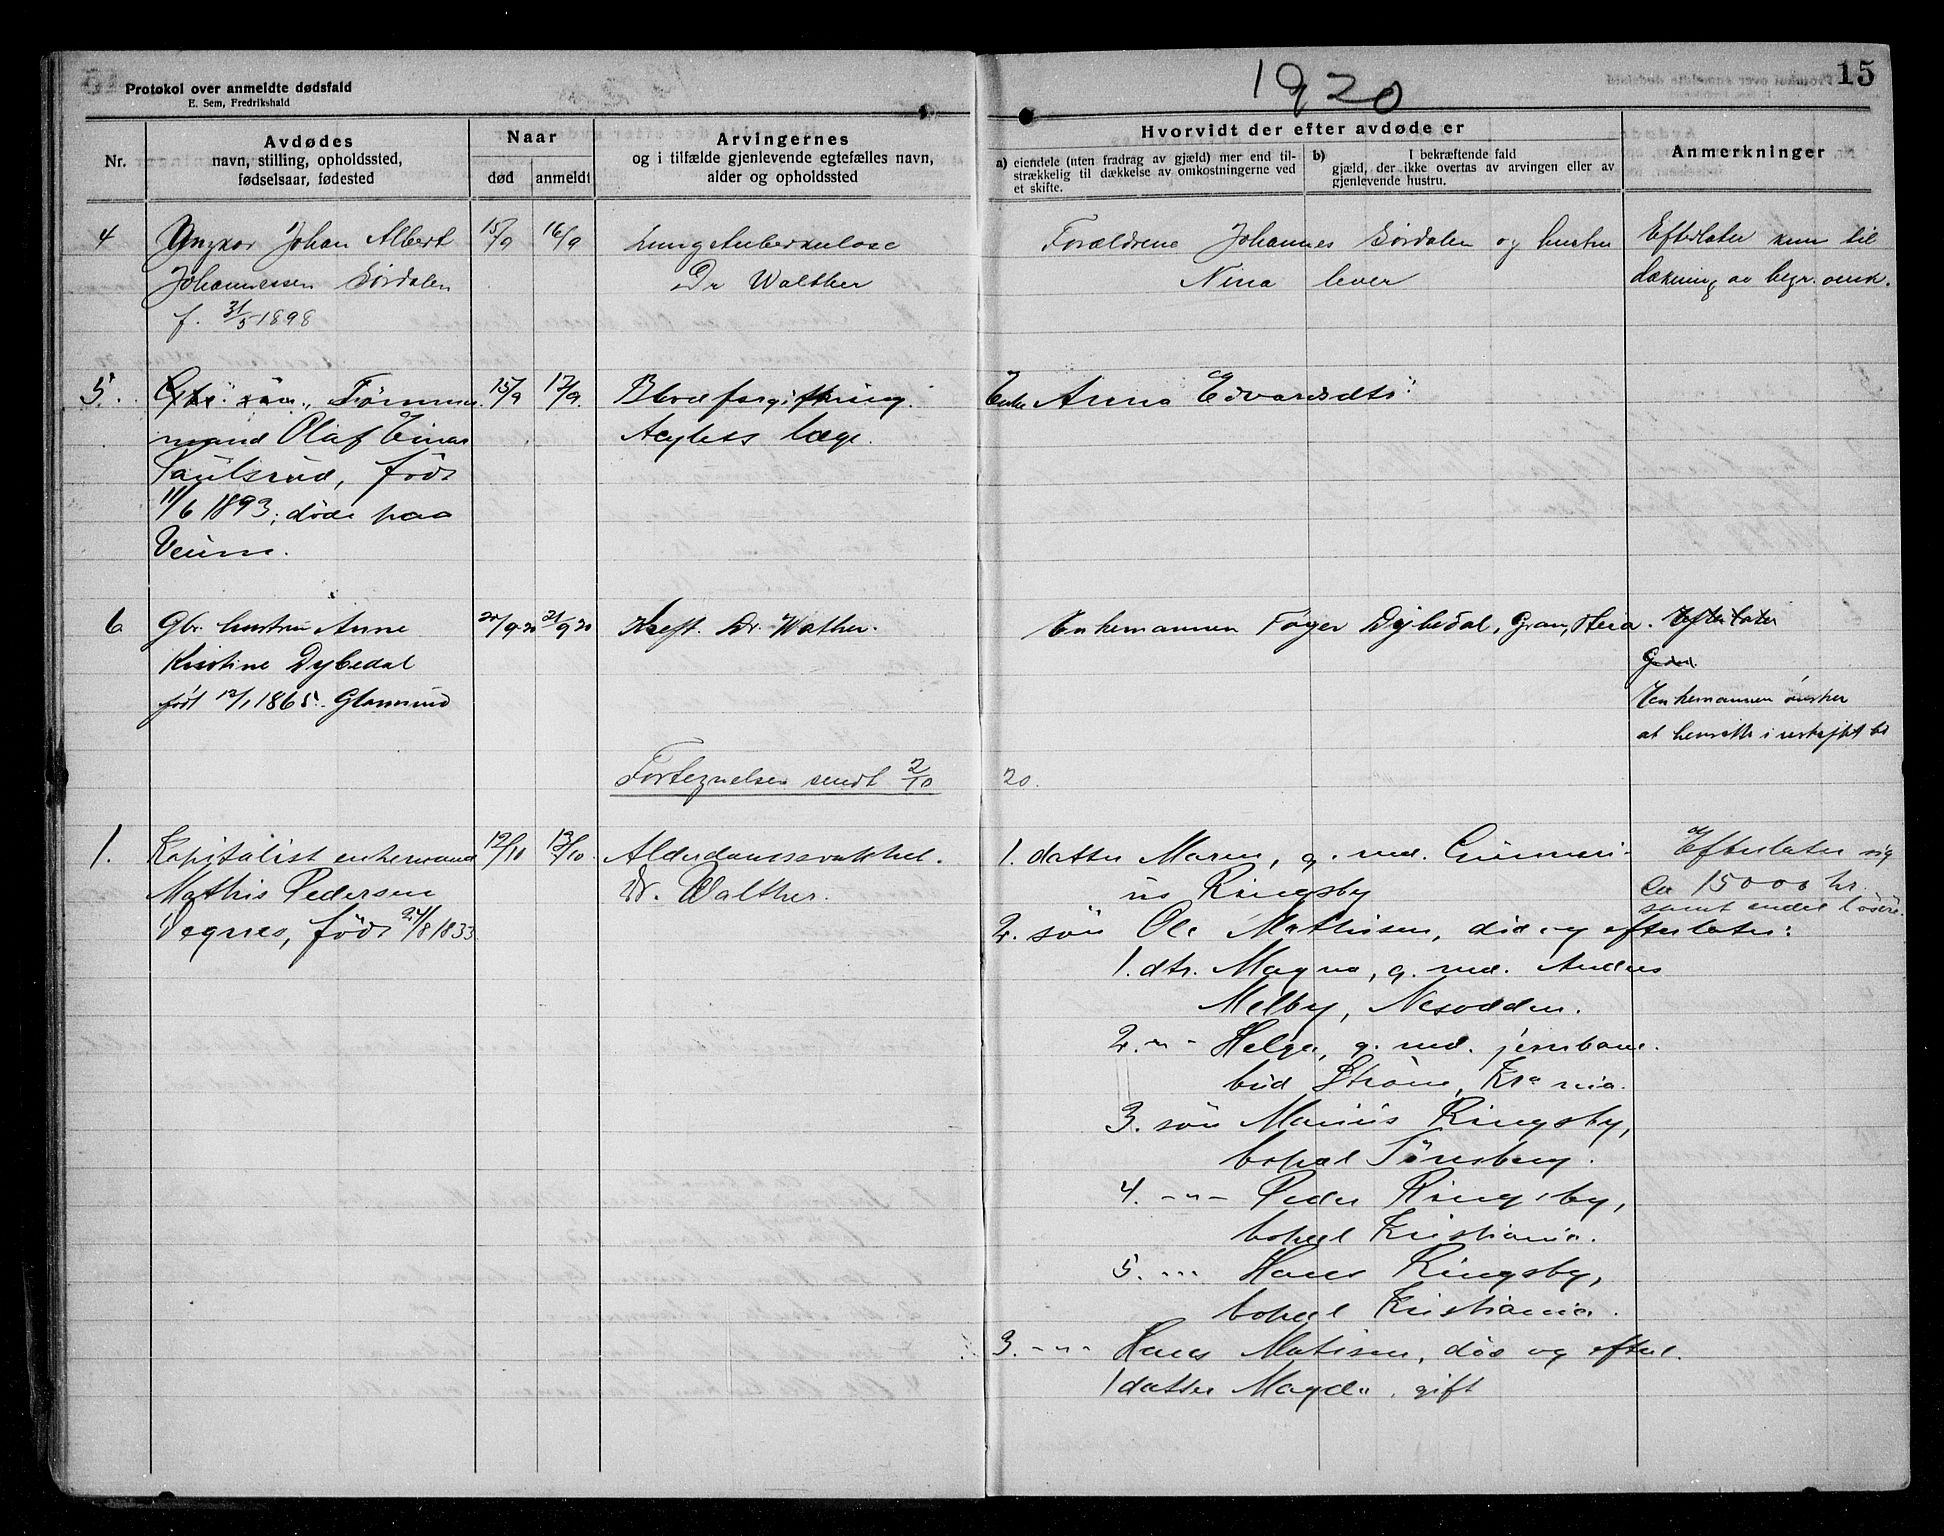 Protokol over anmeldte dødsfald
E. Sem, Fredrikshald
1920
15
Nr.
Avdødes
navn, stilling, opholdssted,
fødselsaar, fødested
Naar
død
anmeldt
Arvingernes
og i tilfælde gjenlevende egtefælles navn,
alder og opholdssted
Hvorvidt der efter avdøde er
a) eiendele (uten fradrag av gjæld) mer end til-
strækkelig til dækkelse av omkostningerne ved
et skifte.
b) I bekræftende fald
gjæld, der ikke overtas av arvingen eller av
gjenlevende hustru.
Anmerkninger
4 Ungkar Johan Albert 15/9 16/9 Lungetuberkulose Forældrene Johannes Sördalen og hustru Efterlater kun til
Johannessen Sördalen Dr Walther Nina lever dækning av begr. omk.
f. 31/5 1898
5. Tömmer 15/9 17/9. Blodforgiftning. Enke Anna Edvardsdtr
mand Olaf Einar læge.
Paulsrud, föds
11/6 1893, döde paa
Veum.
6 Gbr. hustru Anne 20/9 20 21/9 20 Kreft. Dr. Walther. Enkemannen Dybedal, Gran, Efterlater
Kristine Dybedal
født 12/1 1865. Glommund Enkemannen önsker
at hensitte i uskiftet bo
Fortegnelsen sendt 2/10 20.
1. Kapitalist enkemand 12/10 13/10. Alderdomssvakhet. 1. datter Maren, g. med. Gunneri- Efterlater sig
Mathis Pedersen Dr. Walther. us Ringsby ca 15000 kr.
Vegnes, föds 24/8 1833 samt endel lösöre.
2. sön Ole Mathisen, död og efterlater:
1. dtr. Magna, g. med. Anders
Melby, Nesodden.
2. -"- Helga, g. med. jernbane-
bud Ström, Kr.ania.
3. sön Marius Ringsby,
bopæl Tönsberg.
4. -"- Peder Ringsby,
bopæl Kristiania.
5. -"- Hans Ringsby,
bopæl Kristiania.
3. -"- Hans Matisen, död og efterl.
1 datter Magda, gift